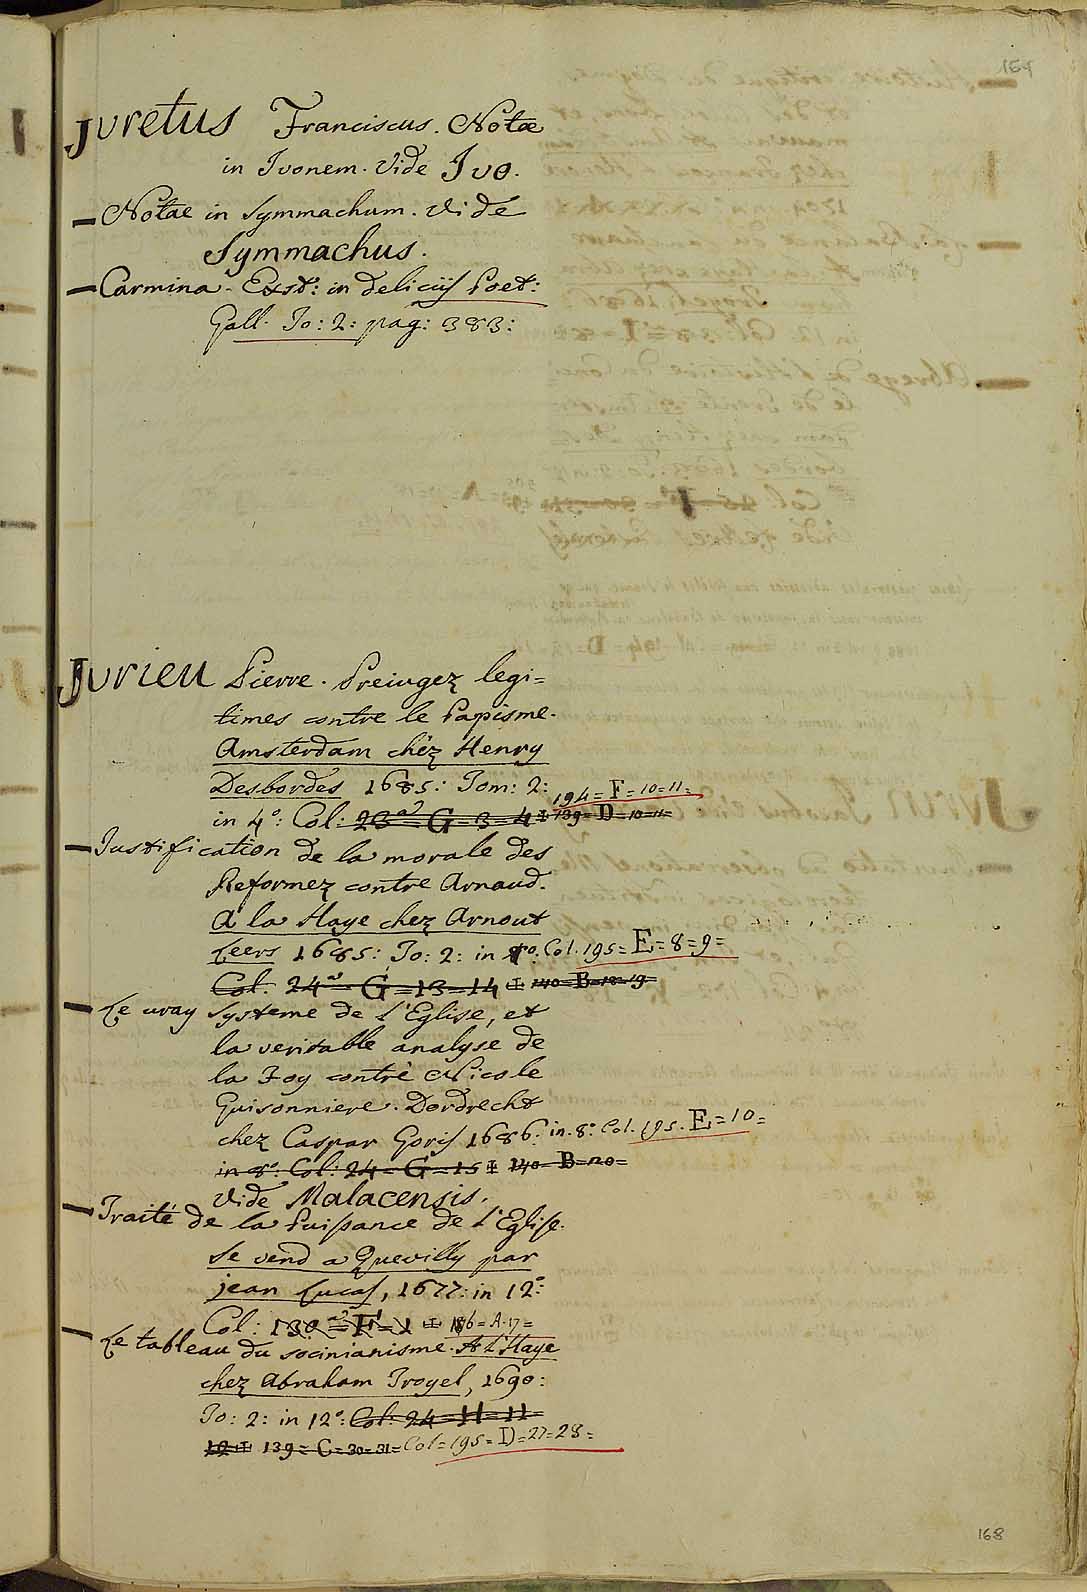 164
Juretus Franciscus. Notae
in Ivonem. Vide Ivo.
Notae in Symmachum. Vide
Symmachus.
Carmina. Exst: in deliciis Poet:
Gall. To: 2: pag: 383:
Jurieu Pierre. Preiugez legi=
times contre le Papisme.
Amsterdam chéz Henry
Desbordes 1685: Tom: 2:
194=F=10=11=
in 4°: Col: 23 G=3=4 139=D=10=11=
Justification de la morale des
Reformez contre Arnaud.
A la Haye chez Arnout
Leers 1685: To: 2: in 8o. Col. 195=E=8=9=
Col. 24 G=13=14 140=B=18=19=
Le vray systeme de l'Eglise, et
la veritable analyse de
la Foy contrè Nicole
Guisonniere. Dordrecht
chez Caspar Goris 1686: in.8° Col. 195. E=10=
in 8°: Col: 24=G=15 140=B=20=
Vide Malacensis.
Traité de la Puissance de l'Eglise.
Se vend a Quevilly par
jean Lucas, 1677: in 12°:
Col: 130 =F=1 186=A.17=
Le tableau du socinianisme. A l'Haye
chez Abraham Troyel, 1690:
To: 2: in 12°: Col: 24=H=11=
12 139=C=30=31= Col=195=D=27=28=
168